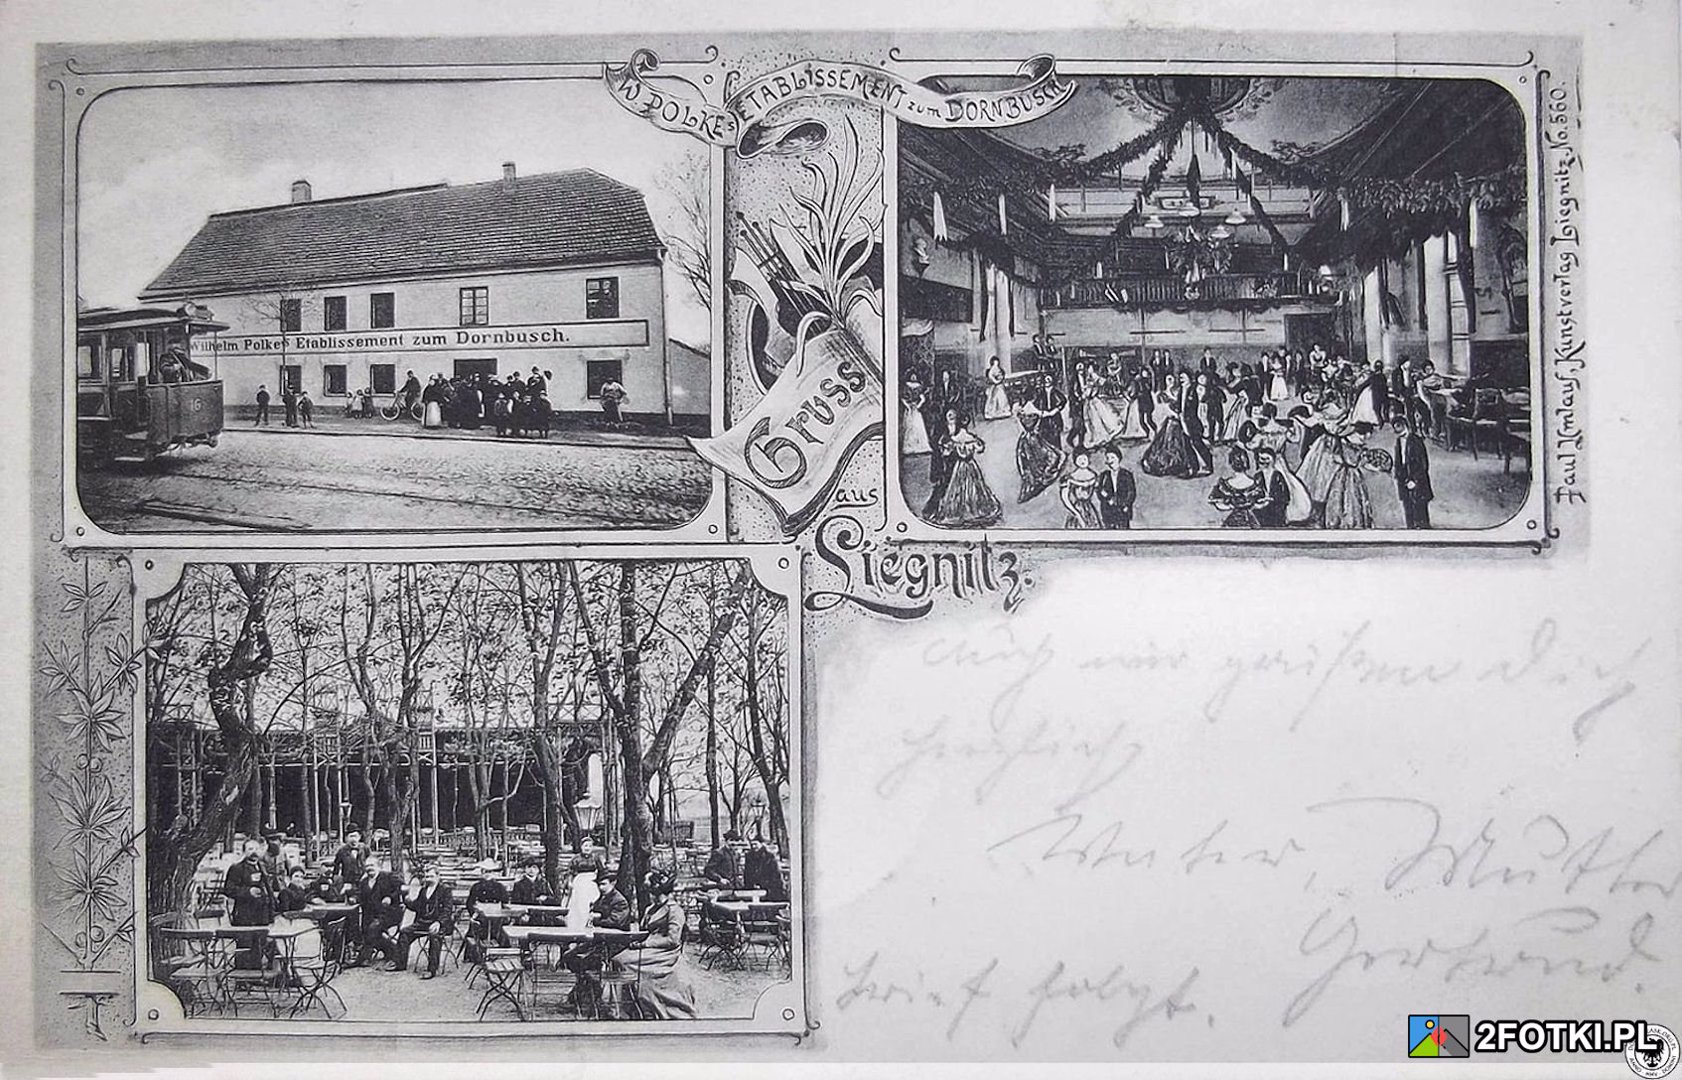 W. POLKEs ETABLISSEMENT zum DORNBUSCH
Wilhelm Polke's Etablissement zum Dornbusch.
16
Gruss
aus
Liegnitz.
Paul Imlauf, Kunstverlag Liegnitz No. 560.
Auch wir grüßen Dich
herzlich
Vater, Mutter
Gertrud.
Brief folgt.
2FOTKI.PL